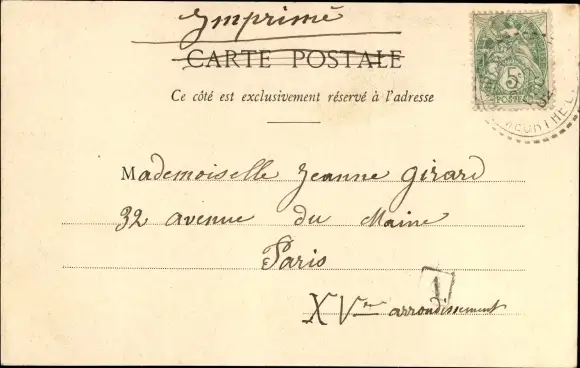 Imprimé
CARTE POSTALE
Ce côté est exclusivement réservé à l'adresse
5c
POSTES
Mademoiselle Jeanne Girard
32 avenue du Maine
Paris
1
XVme arrondissement